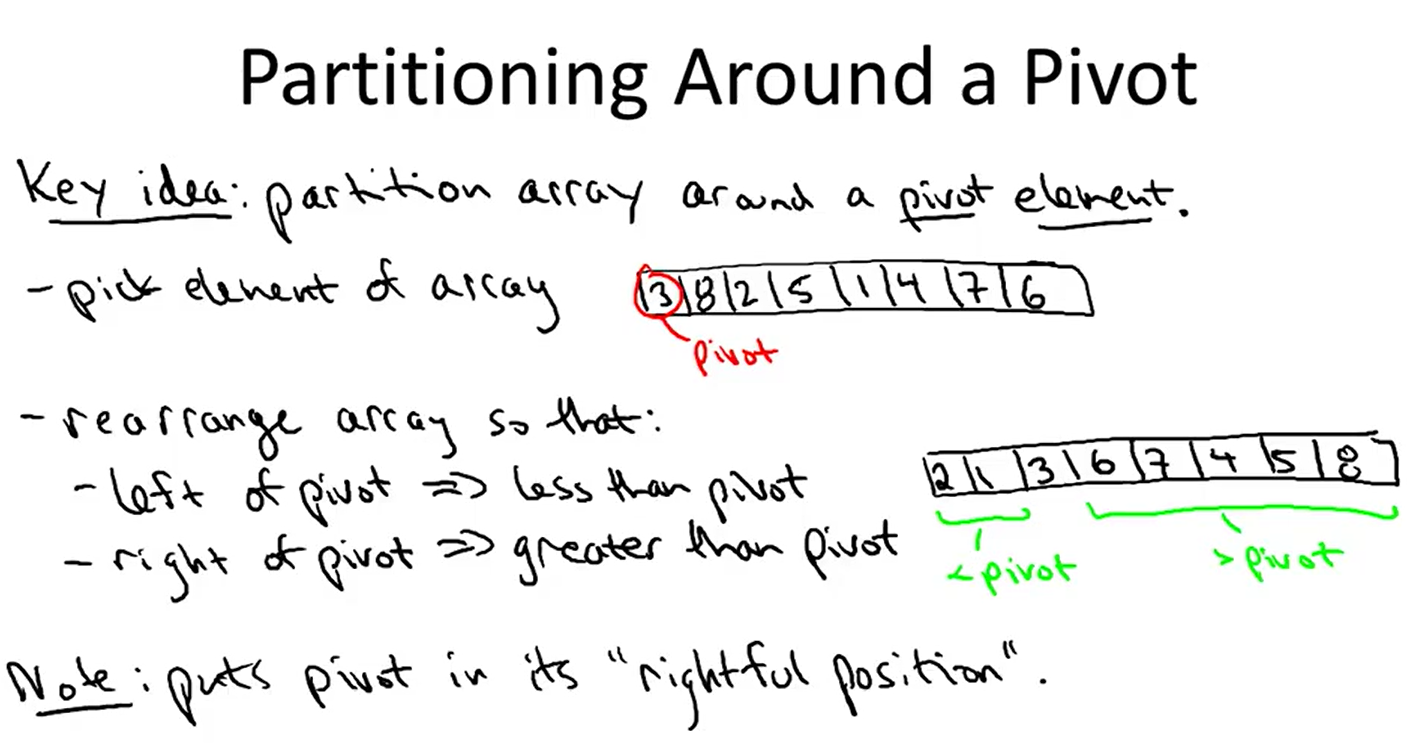 Partitioning Around a Pivot
Key idea: partition array around a pivot element.
- pick element of array
3 | 8 | 2 | 5 | 1 | 4 | 7 | 6
pivot
- rearrange array so that:
- left of pivot => less than pivot
2 | 1 | 3 | 6 | 7 | 4 | 5 | 8
- right of pivot => greater than pivot
< pivot
> pivot
Note: puts pivot in its "rightful position".